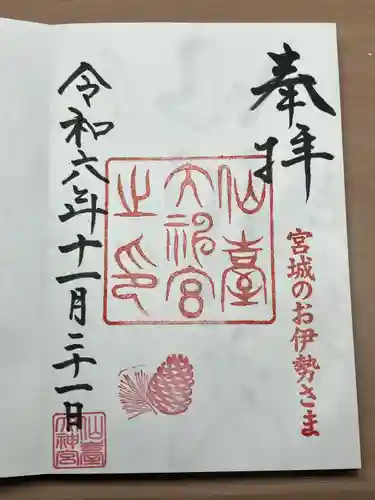 奉拝
宮城のお伊勢さま
仙臺
大神宮
之印
令和六年十一月二十一日
仙臺
大神宮